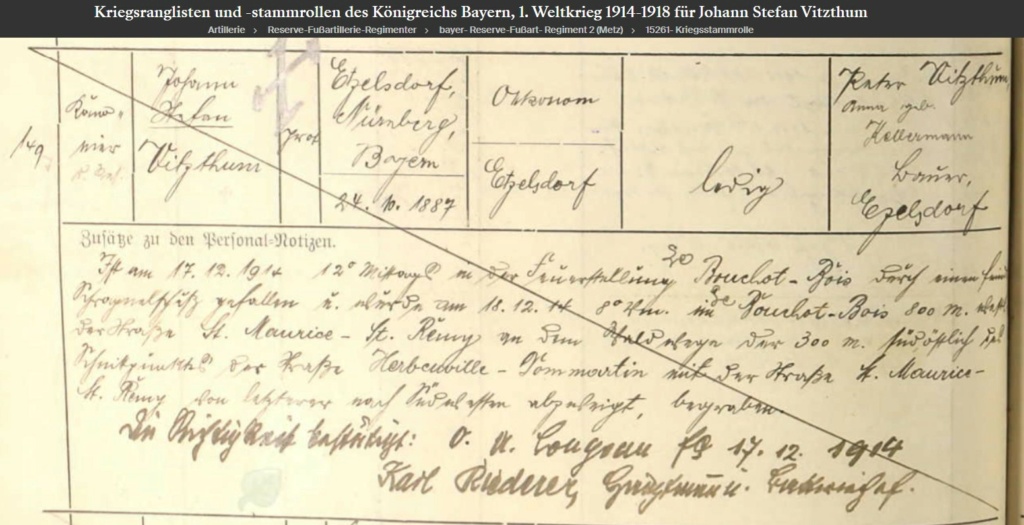 Kriegsranglisten und -stammrollen des Königreichs Bayern, 1. Weltkrieg 1914-1918 für Johann Stefan Vitzthum
Artillerie > Reserve-Fußartillerie-Regimenter > bayer- Reserve-Fußart- Regiment 2 (Metz) > 15261- Kriegsstammrolle
149
Kano-
nier
Johann
Stefan
Vitzthum
Prot
Etzelsdorf,
Nürnberg,
Bayern
24. 10. 1887
Ökonom
Etzelsdorf
ledig
Peter Vitzthum,
Anna geb.
Kellermann
Bauer,
Ezelsdorf
Zusätze zu den Personal-Notizen.
Ist am 17.12.1914 12° Mittags in der Feuerstellung Bouchot-Bois durch einen
Schrapnellschuß gefallen u. wurde am 18.12.14 8° Vm. im Bouchot-Bois 800 m.
der Straße St. Maurice - St. Rémy an dem Waldwege der 300 m. südöstlich des
Schnittpunktes der Straße Herbeuville - Dommartin mit der Straße St. Maurice-
St. Rémy von letzterer nach Südwesten abzweigt, begraben.
Die Richtigkeit bestätigt: O. U. Longeau 17.12.1914
Karl Ruderer, Hauptmann u. Batteriechef.